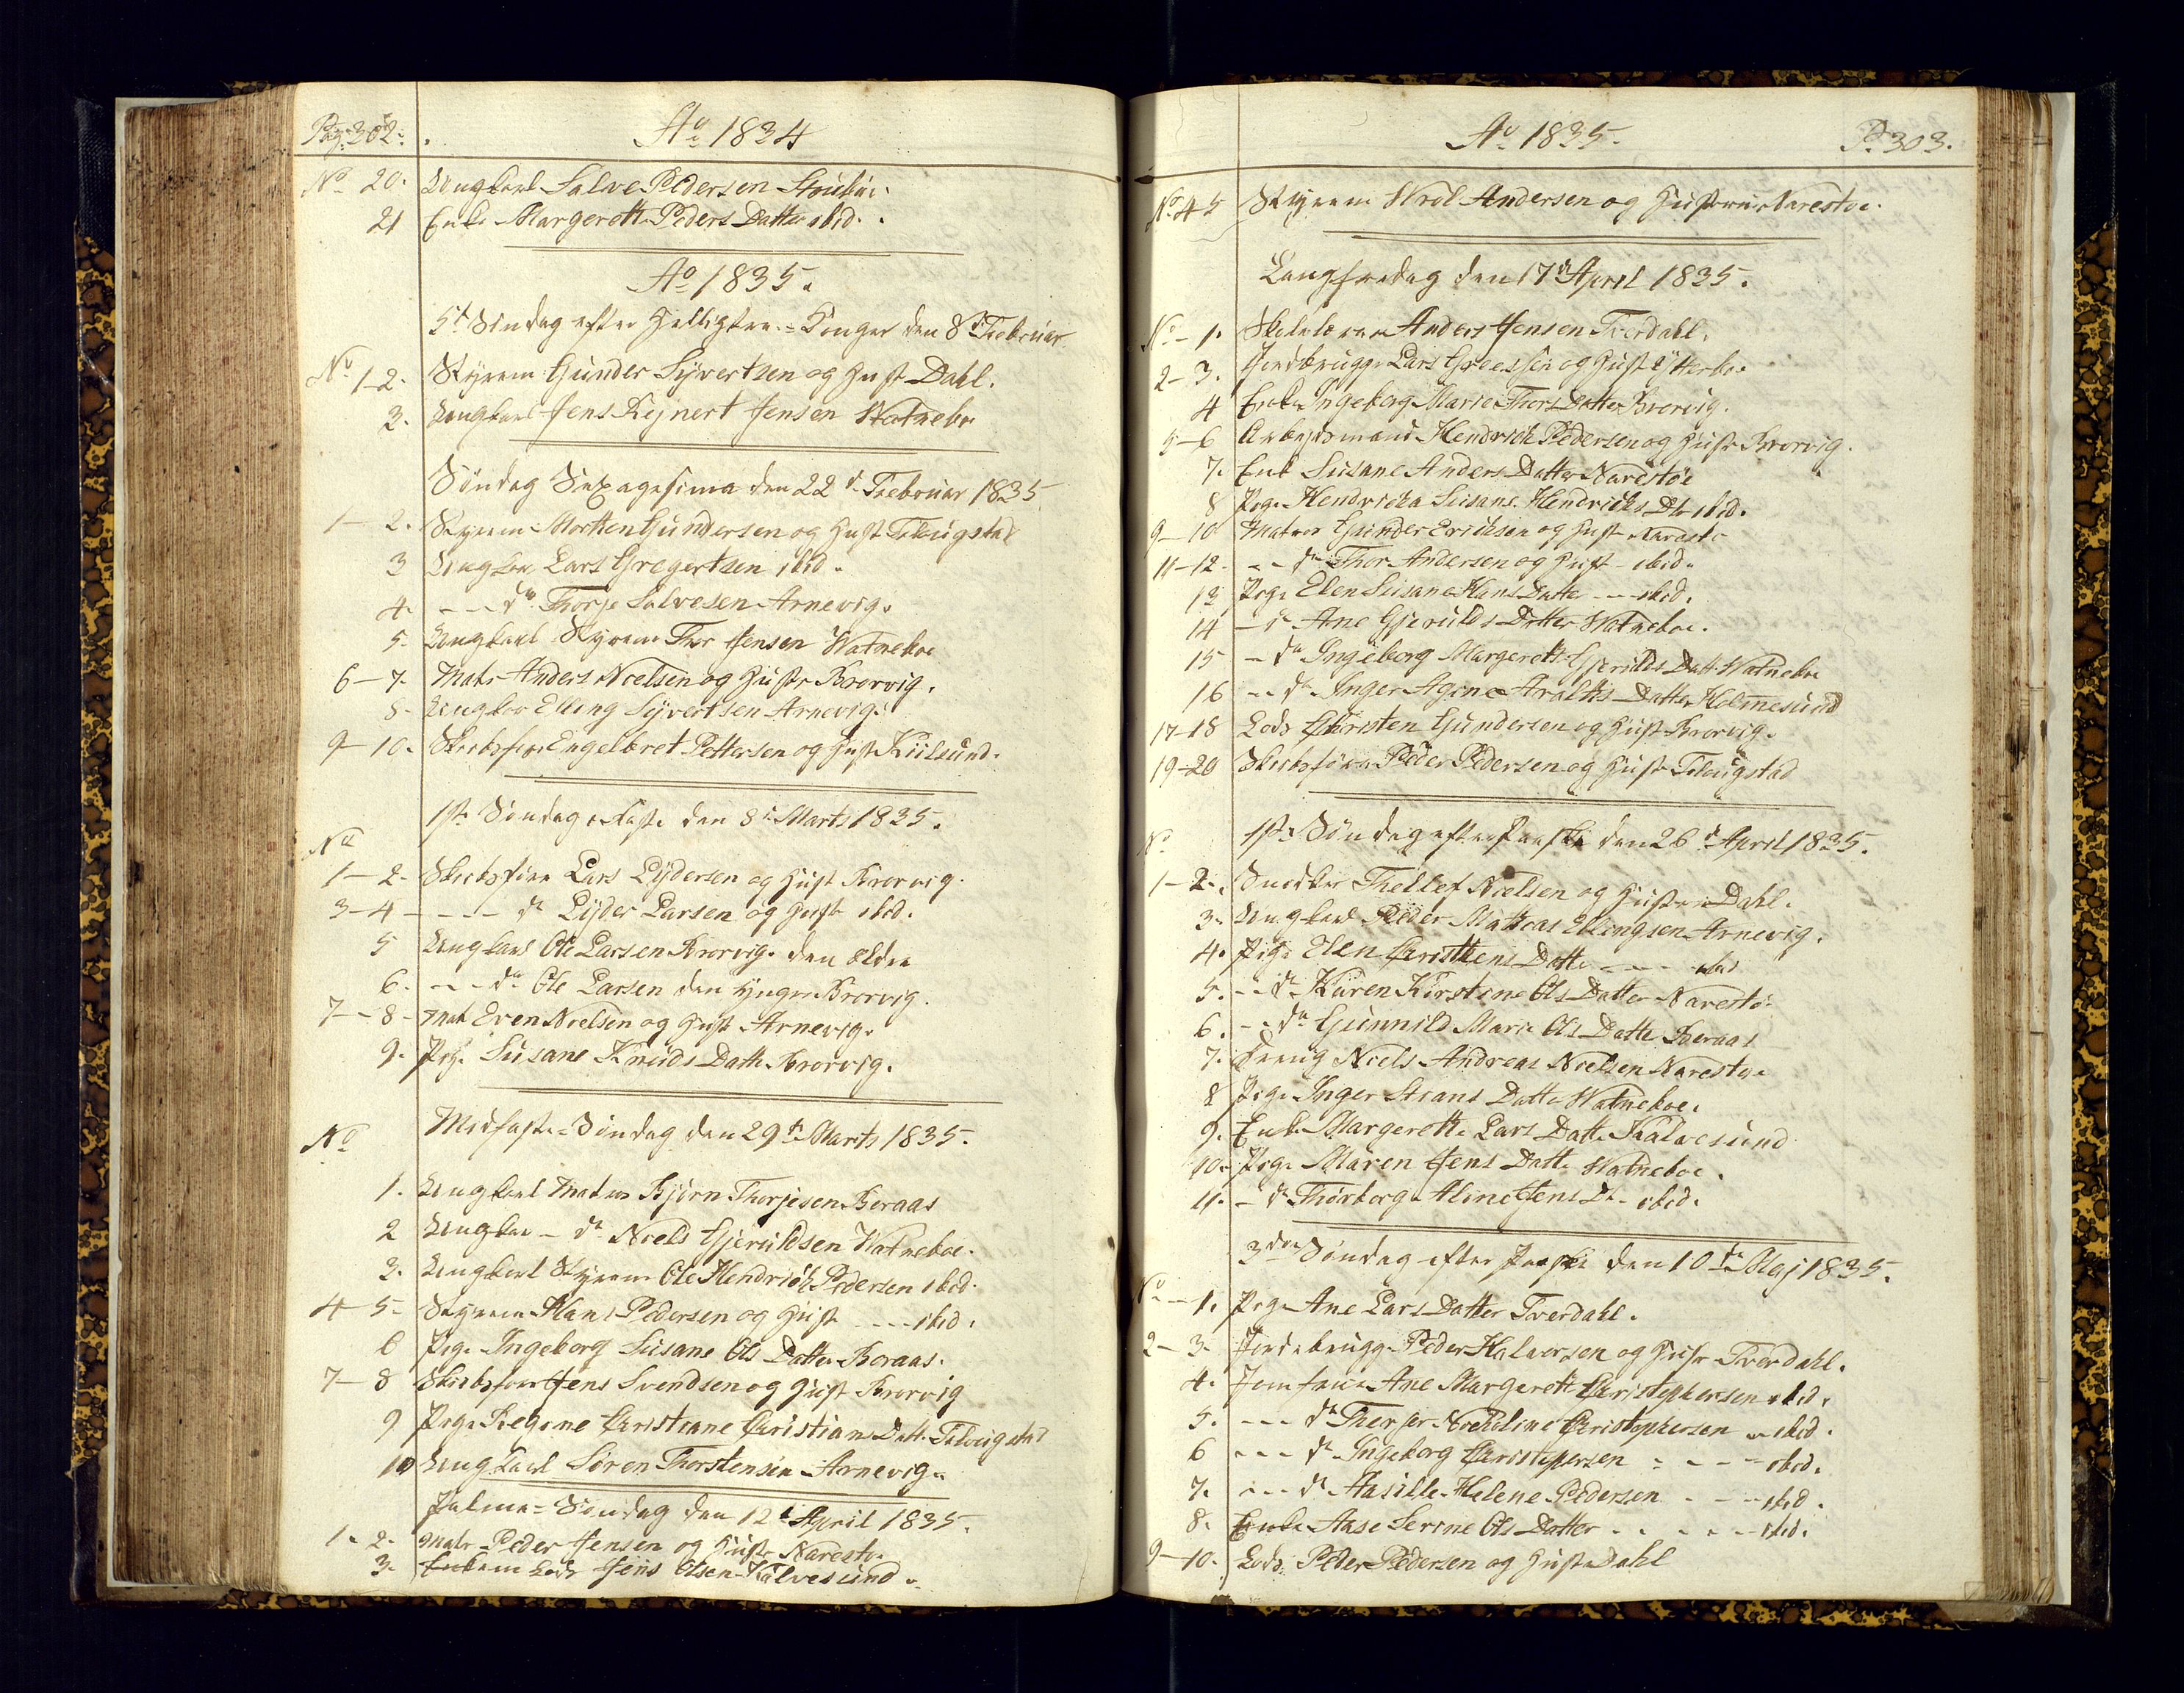 Pag: 302. Ao 1834
No 20. Ungkarl Salve Pedersen
21 Enke Margerethe Peders Datter ibid.
Ao 1835.
5te Søndag efter Hellig tre-Konger den 8de Februar
No 1-2. Styrem Gunder Syvertsen og Hust Dahl.
3. Ungkarl Jens Rejnert Jensen Watnebo
Søndag Sexagesima den 22de Februar 1835
1-2. Styrem Morthen Gundersen og Hust
3 Ungkar Lars Gregertsen ibid.
4. --- do Thorje Salvesen Arnevig.
5. Ungkarl Styrem Thor Jensen Watneboe
6-7. Matr Anders Nielsen og Hustr Brorvig.
8. Ungkar Elling Syvertsen Arnevig.
9-10. Skibsfør Engelbret Pettersen og Hust Kiilsund.
1ste Søndag i Faste den 8de Marts 1835.
No
1-2. Skibsføre Lars Lydersen og Hust Brorvig.
3-4 --- do Lyder Larsen og Hust ibid.
5 Ungkarl Ole Larsen Brorvig. den ældre
6. --- do Ole Larsen den yngre Brorvig.
7-8 Mat Even Nielsen og Hust Arnevig.
9. Pige Susane Knuds Datt. Brorvig.
No Midfaste-Søndag den 29de Marts 1835.
1. Ungkarl Matros Bjørn Thorjesen Boraas
2 Ungkar - do Niels Gjeruldsen Watneboe.
3. Ungkarl Styrem Ole Hendrich Pedersen ibid.
4-5. Styrem Hans Pedersen og Hust --- ibid.
6 Pige Ingeborg Susane Ols Datter Boraas.
7-8 Skibsfører Jens Svendsen og Hust Brorvig
9 Pige Regine Christiane Christians Datt.
10 Ungkarl Søren Thorstensen Arnevig.
Palme-Søndag den 12te April 1835.
1. 2. Matr Peder Jensen og Hustr Narestø.
3. Enkem Lods Jens Olsen Kalvesund.
Ao 1835. P. 303.
No 4 5 Styrem Wrol Andersen og Hustrue Narestoe.
Langfredag den 17de April 1835.
No-1. Skolelærer Anders Jensen Tverdahl.
2-3. Jordbrugge Lars og Hust Ytterbo.
4 Enke Ingeborg Marie Thors Datter Brorvig.
5-6 Arbejdsmand Hendrich Pedersen og Hustr Brorvig.
7. Enk Susane Anders Datter Narestøe
8 Pige Hendricka Susane Hendrichs Dtr ibid.
9-10 Matros Gunder Erichsen og Hust Narestø
11-12. -- do Thor Andersen og Hust - ibid.
13 Pige Elen Susane Hans Datte --- ibid.
14 - do Ane Gjerulds Datter Watneboe.
15 - do Ingeborg Margerethe Gjerulds Datt. Watneboe
16 -- do Inger Agine Datter Holmesund
17-18 Lods Christen Gundersen og Hust Brorvig.
19-20 Skibsføre Peder Pedersen og Hustr
No 1ste Søndag efter Paaske den 26de April 1835.
1-2. Snedker Thellef Nielsen og Hustrue Dahl.
3. Ungkarl Peder Mathias Ellingsen Arnevig.
4. Pige Elen Christens Datte --- ibid
5. -- do Karen Kirstine Ols Datter Narestø
6. -- do Gunnild Marie Ols Datte Boraas
7. Dreng Niels Andreas Nielsen Narestoe
8 Pige Inger Datte Watneboe.
9. Enke Margerethe Lars Datte Kaalvesund
10. Pige Maren Jens Datte Watneboe.
11. - do Thorborg Aline Jens Dt. ibid.
3die Søndag efter Paaske den 10de Maj 1835.
No - 1. Pige Ane Lars Datter Tverdahl.
2-3. Jordebrugge Peder Halvorsen og Hustr Tverdahl.
4. Jomfrue Ane Margerethe Christophersen ibid.
5. --- do Christophersen - ibid.
6 --- do Ingeborg Christophersen ---- ibid.
7. --- do Aasille Helene Pedersen --- ibid.
8. Enke Aase Serine Ols Datter ---- ibid.
9-10. Lods Peder Pedersen og Hustr Dahl